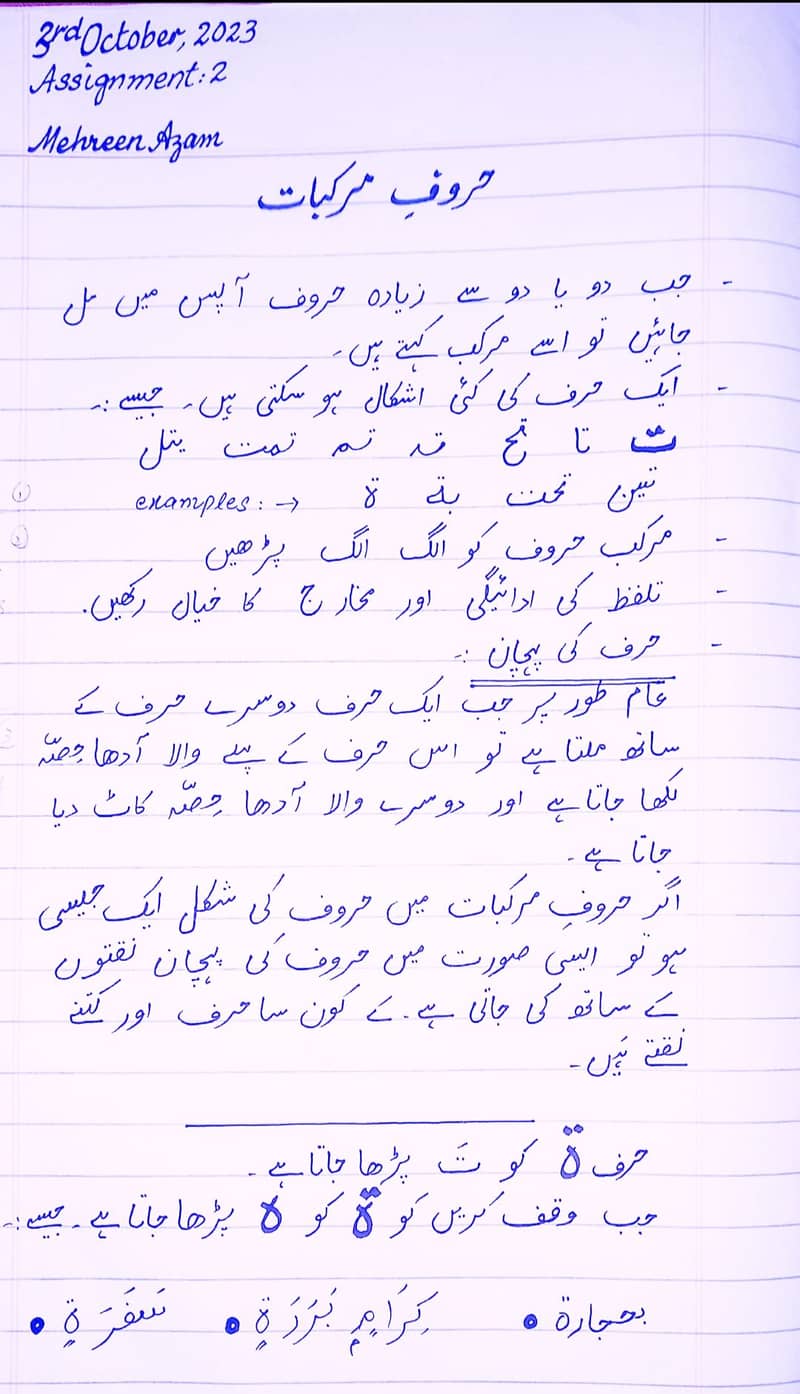 3rd October, 2023
Assignment: 2
Mehreen Azam
حروفِ مرکبات
- جب دو یا دو سے زیادہ حروف آپس میں مل
جائیں تو اسے مرکب کہتے ہیں۔
- ایک حرف کی کئی اشکال ہو سکتی ہیں۔ جیسے :-
ت تا تح تد تم تمت یتل
examples: → تین تحت بتہ ة
- مرکب حروف کو الگ الگ پڑھیں
- تلفظ کی ادائیگی اور مخارج کا خیال رکھیں.
- حرف کی پہچان :-
عام طور پر جب ایک حرف دوسرے حرف کے
ساتھ ملتا ہے تو اس حرف کے پہلے والا آدھا حِصّہ
لکھا جاتا ہے اور دوسرے والا آدھا حِصّہ کاٹ دیا
جاتا ہے۔
اگر حروفِ مرکبات میں حروف کی شکل ایک جیسی
ہو تو ایسی صورت میں حروف کی پہچان نقتوں
کے ساتھ کی جاتی ہے۔ کے کون سا حرف اور کتنے
نقتے ہیں۔
حرف ة کو تَ پڑھا جاتا ہے۔
جب وقف کریں تو ة کو ہ پڑھا جاتا ہے۔ جیسے :-
بحجارة • كِرَامٍ بَرَرَةٍ • سَفَرَةٍ •